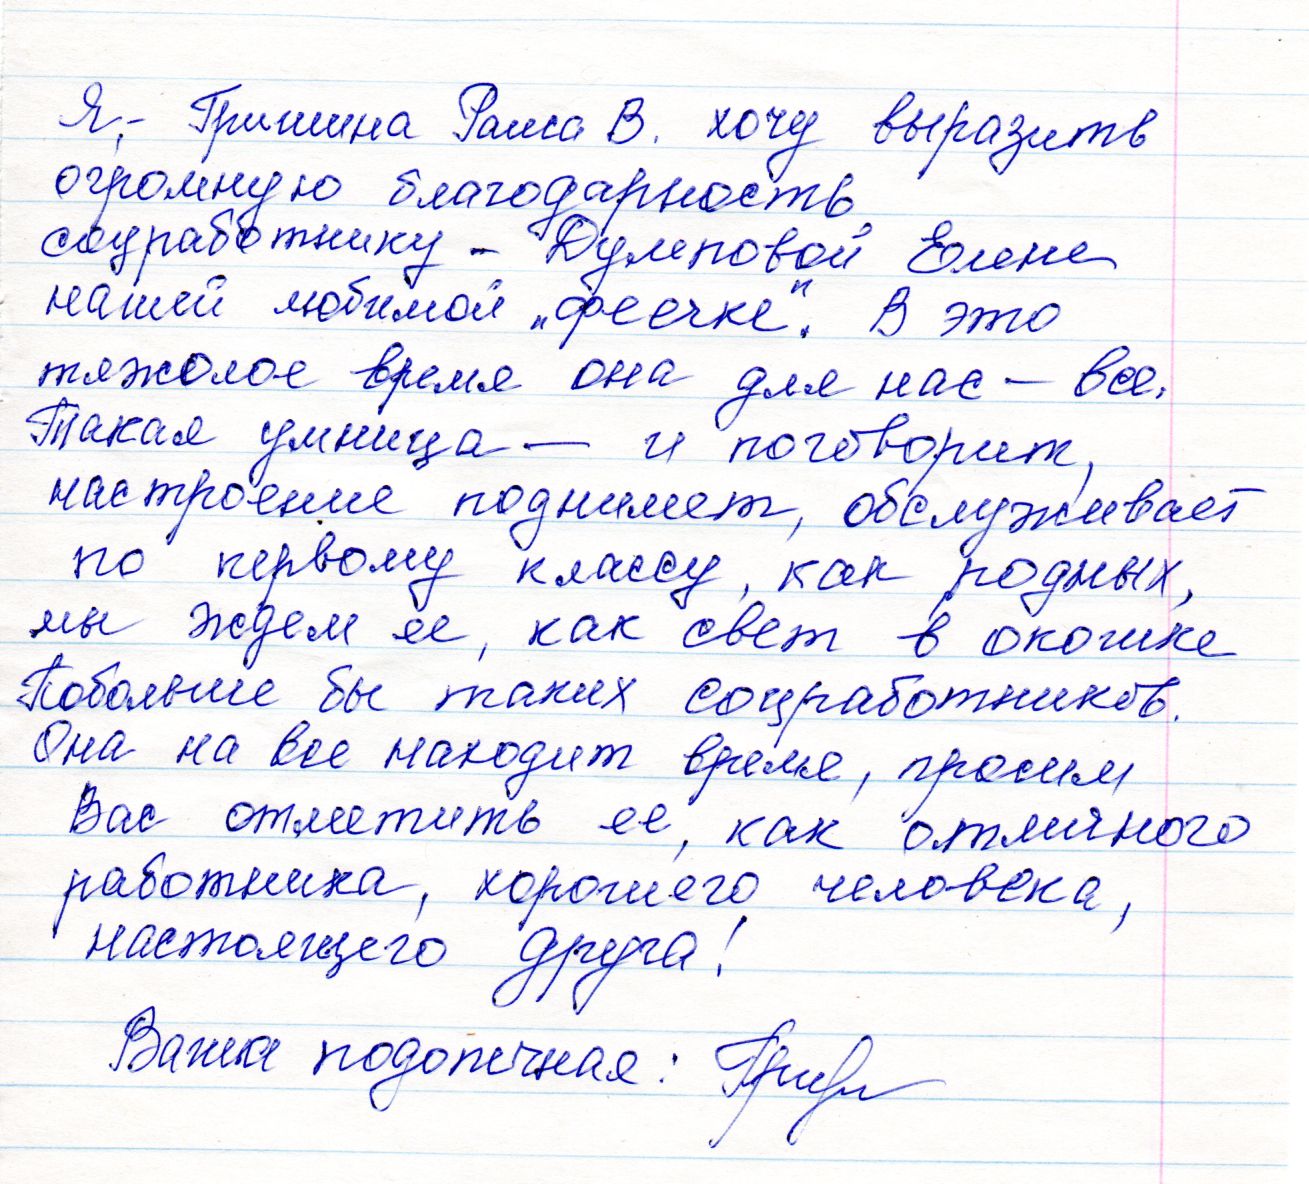 Я, - Гришина Раиса В. хочу выразить
огромную благодарность
соцработнику - Дулеповой Елене
нашей любимой „феечке“. В это
тяжолое время она для нас — все.
Такая умница — и поговорит,
настроение поднимет, обслуживает
по первому классу, как родных,
мы ждем ее, как свет в окошке
Побольше бы таких соцработников.
Она на все находит время, просим
Вас отметить ее, как отличного
работника, хорошего человека,
настоящего друга!
Ваша подопечная: